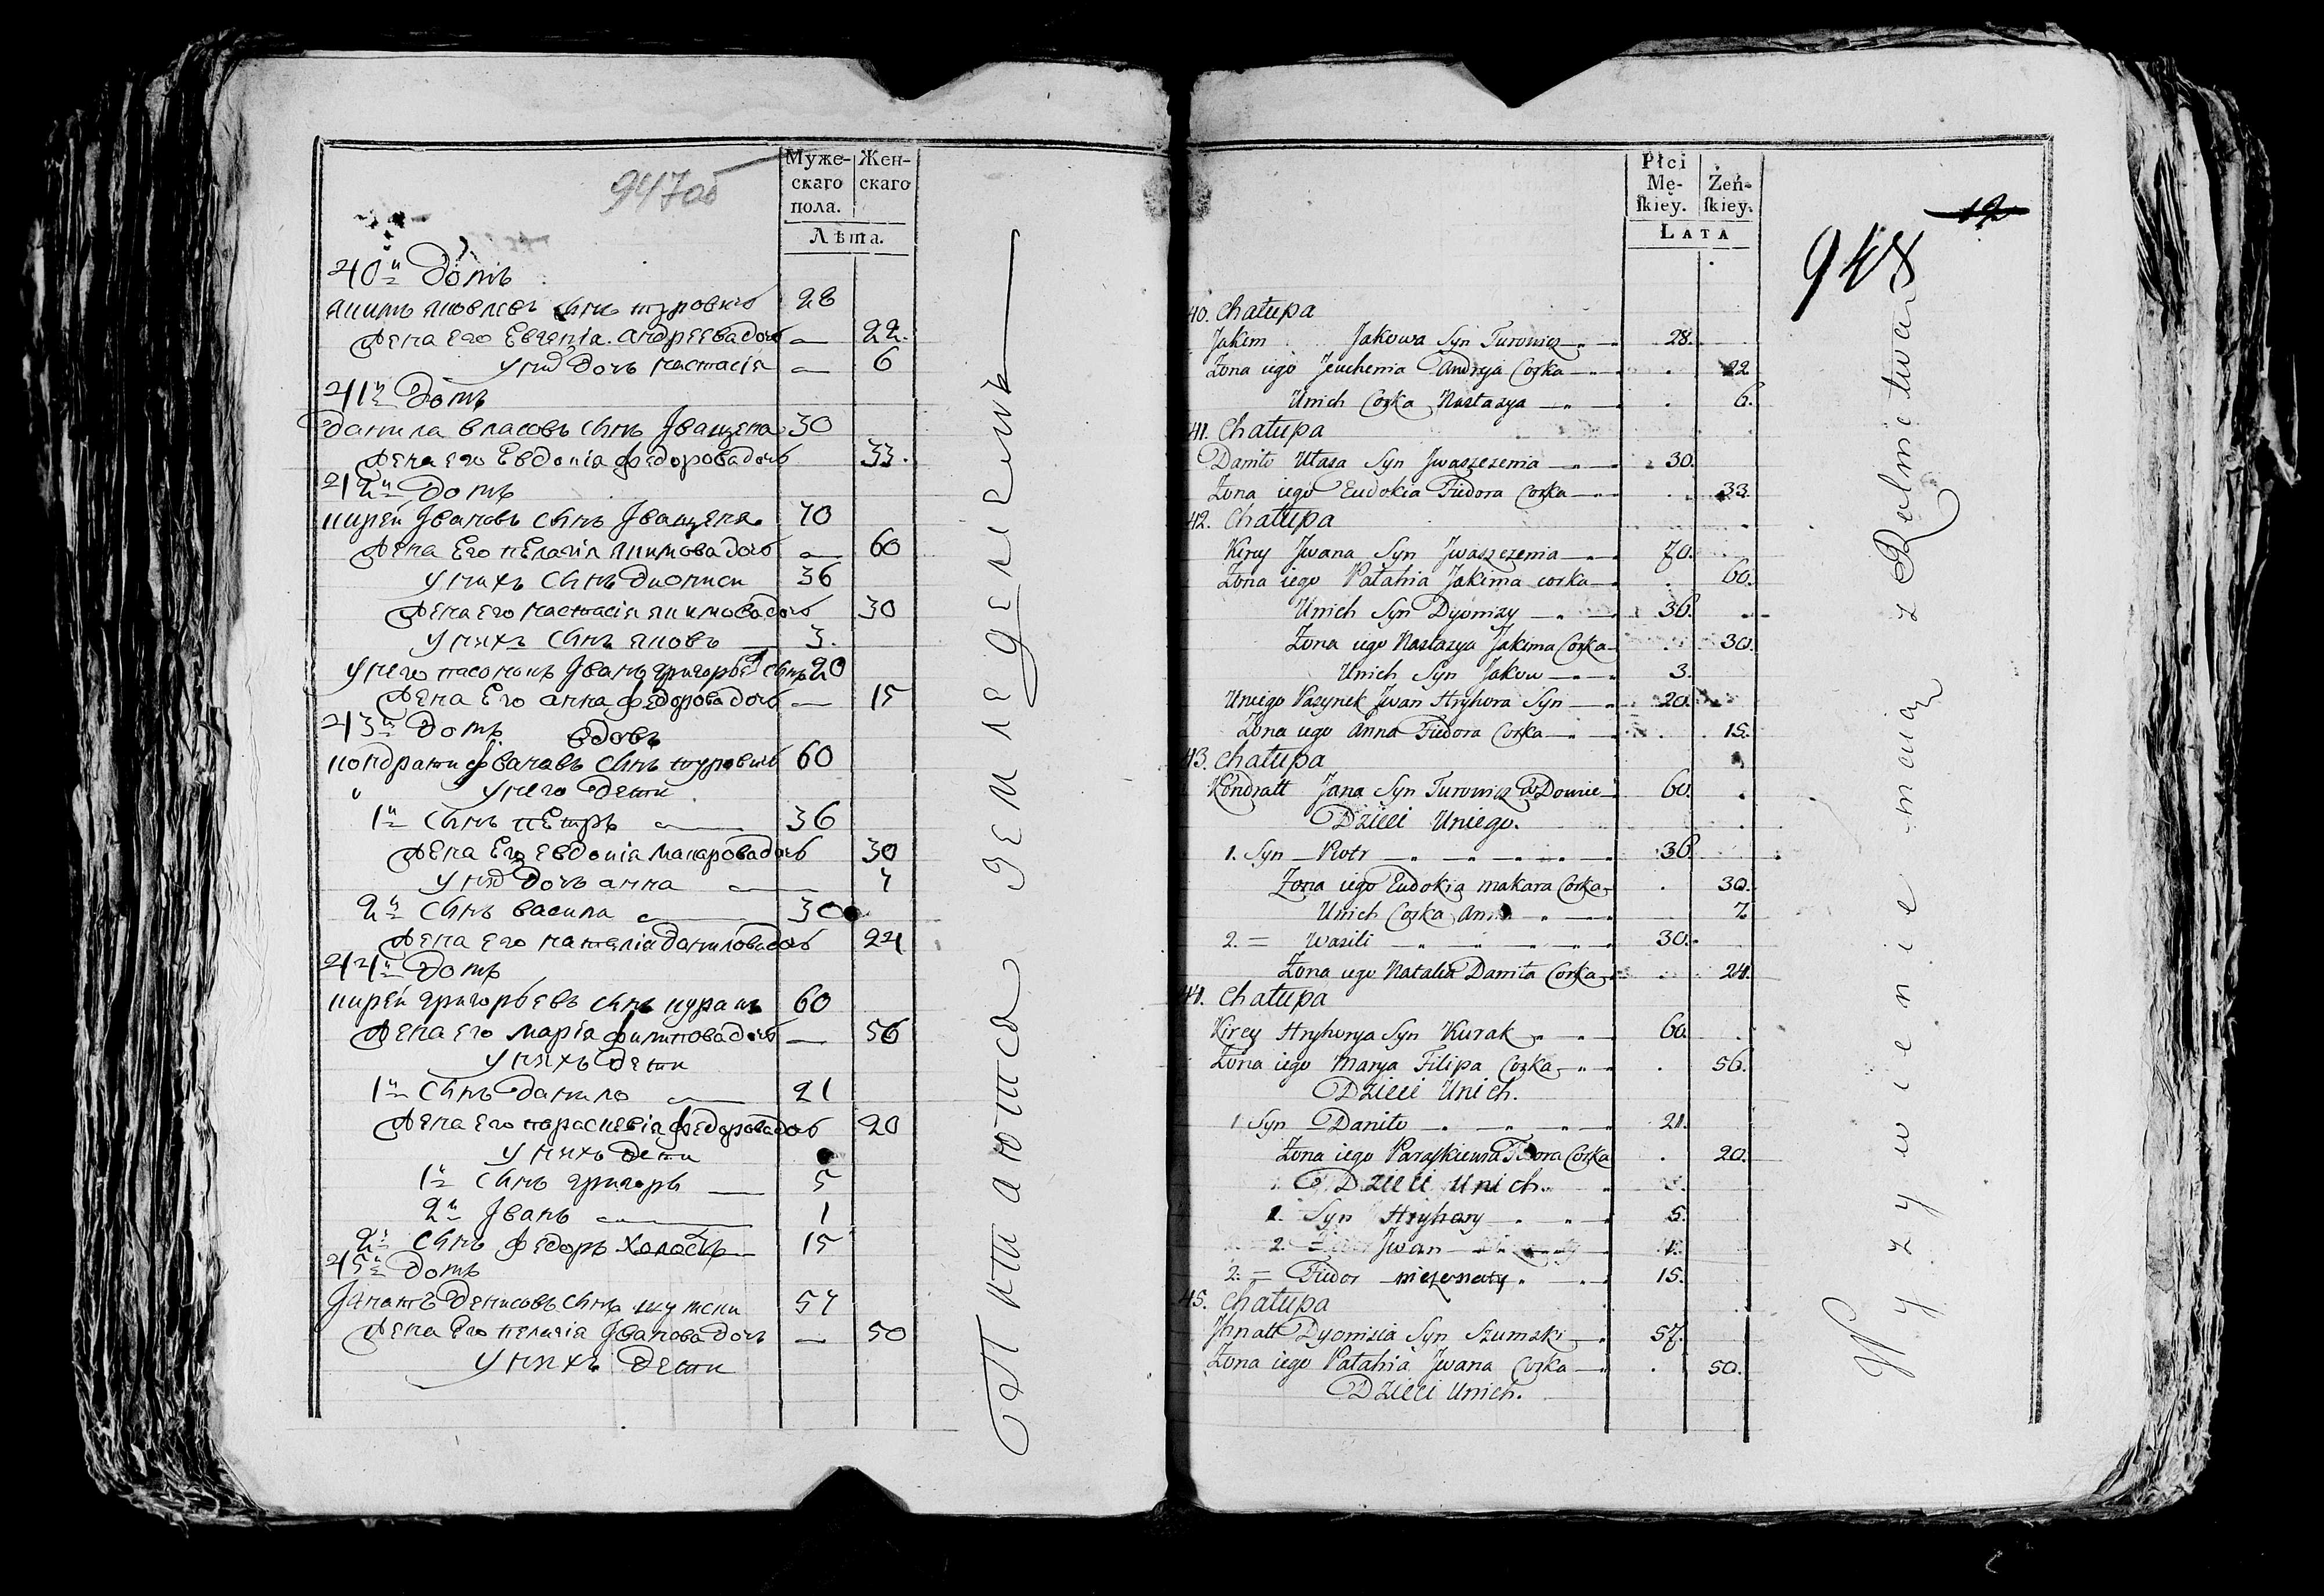 947об
Муже- Жен-
скаго скаго
пола.
Лѣта.
40й домъ
якимъ яковлевъ сынъ туровичъ 28
жена его Евгенія андреева дочь — 22.
у нихъ дочь настасія — 6
41й домъ
данила власовъ сынъ Іващеня 30
жена его Евдокія федорова дочь 33.
42й домъ
кирей Івановъ сынъ Іващеня 70
жена Его пелагія якимова дочь — 60
у нихъ сынъ диониси 36
жена его настасія якимова дочь 30
у нихъ сынъ яковъ — 3.
у него пасынокъ Іванъ григорьевъ сынъ 20
жена Его анна федорова дочь — 15
43й домъ вдовъ
кондрати Ivановъ сынъ туровичъ 60
у него дети
1й сынъ петръ — 36
жена Его евдокія макарова дочь 30
у нихъ дочь анна — 7
2й сынъ васила — 30
жена его наталія данилова дочь 24
44й домъ
кирей григорьевъ сынъ куракъ 60
жена его марія филипова дочь — 56
у нихъ дети
1й сынъ данило — 21
жена его параскевія федорова дочь 20
у нихъ дети
1й сынъ григоръ — 5
2й Іванъ — 1
2й сынъ федоръ холостъ 15
45й домъ
Ігнатъ денисовъ сынъ шумски 57
жена Его пелагія Іванова дочь — 50
у нихъ дети
Питаются земледелиемъ
Płci
Mę- Żeń-
skiey. skiey.
LATA
12
948
40. Chałupa
Jakim Jakowa Syn Turowicz 28.
Żona iego Jeuchenia Andreja Corka 22
Unich Corka Nastazya 6.
41. Chałupa
Daniło Ułasa Syn Jwaszczenia 30.
Żona iego Eudokia Fiedora Corka 33.
42. Chałupa
Kirey Jwana Syn Jwaszczenia 70.
Żona iego Pałahia Jakima corka 60.
Unich Syn Dyonizy 36.
Żona iego Nastazya Jakima Corka 30.
Unich Syn Jakow 3.
Uniego Pazynek Jwan Hryhora Syn 20.
Żona iego Anna Fiedora Corka 15.
43. Chałupa
Kondratt Jana Syn Turowicz Wdowiec 60.
Dzieci Uniego.
1. Syn Piotr 36.
Żona iego Eudokia makara Corka 30.
Unich Corka Anna 7.
2. = Wasili 30.
Żona iego Natalia Daniła Corka 24.
44. Chałupa
Kirey Hryhorya Syn Kurak 60.
Żona iego Marya Filipa Corka 56.
Dzieci Unich.
1 Syn Daniło 21.
Żona iego Paraskiewia Fiedora Corka 20.
Dzieci Unich.
1. Syn Hryhory 5.
2. = Jwan 1.
2. = Fiedor nieżonaty 15.
45. Chałupa
Jhnatt Dyonizia Syn Szumski 57.
Żona iego Pałahia Jwana Corka 50.
Dzieci Unich.
Wyżywienie maią z Rolnictwa